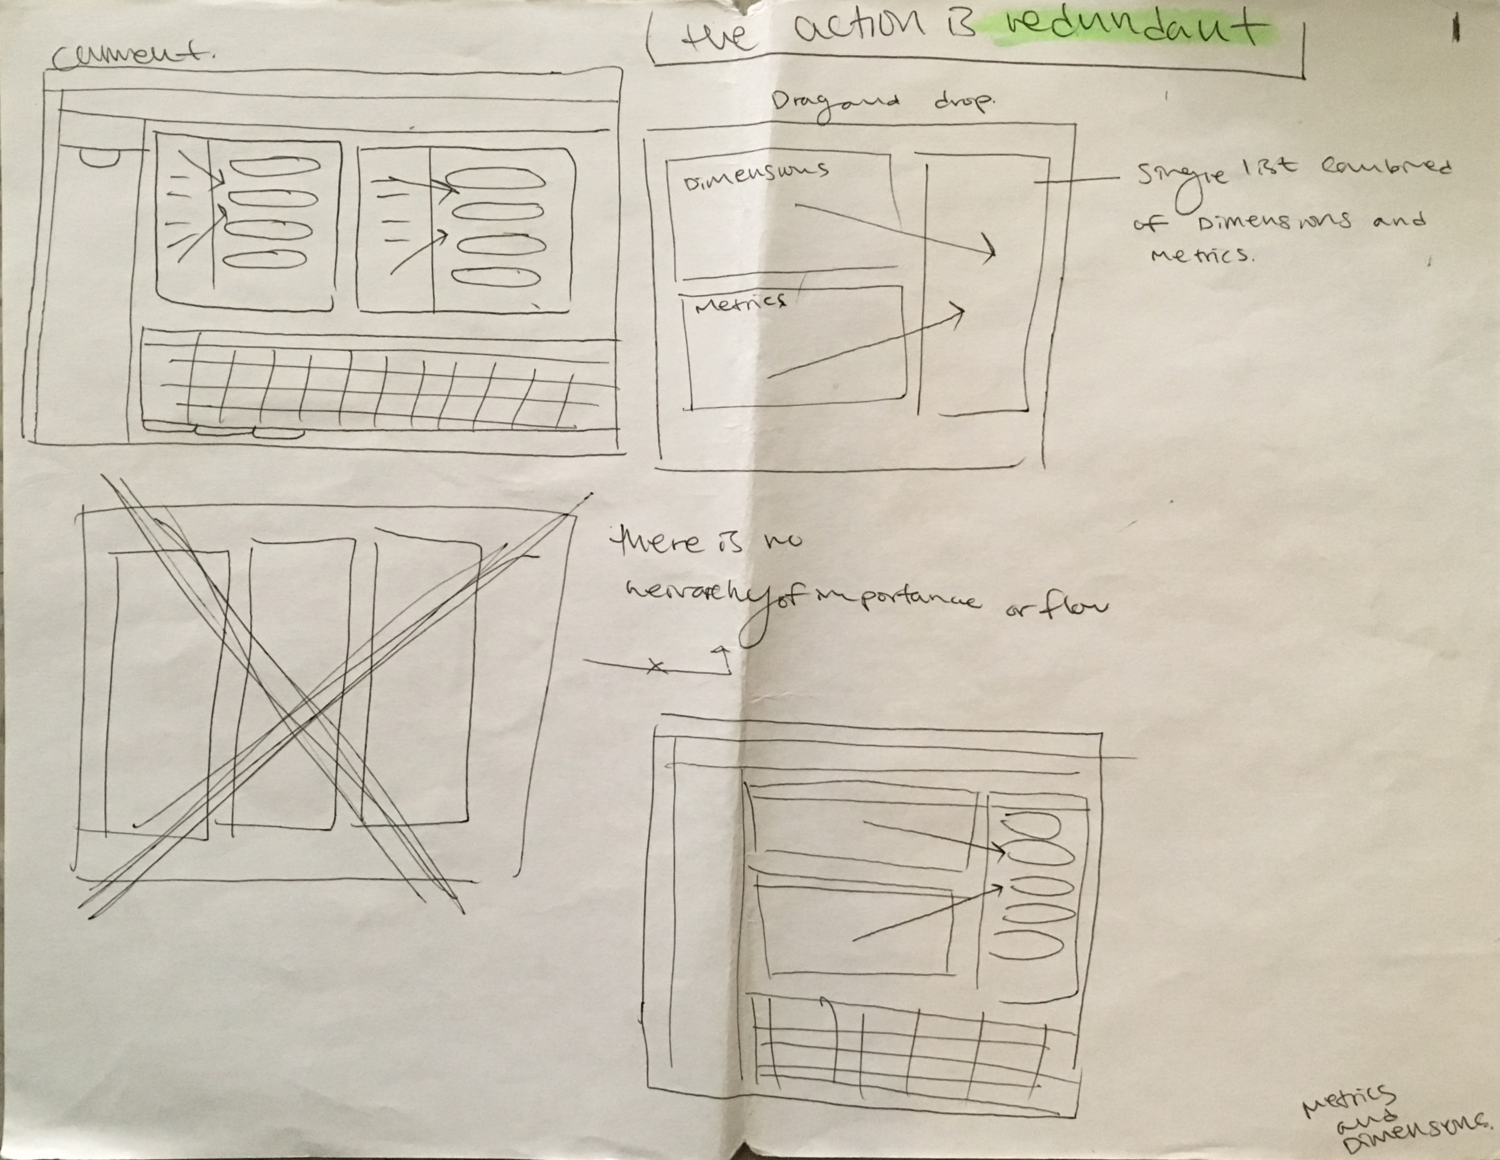 current.
the action is redundant
1
Drag and drop.
Dimensions
Metrics
Single list combined
of Dimensions and
Metrics.
there is no
heirarchy of importance or flow
Metrics
and
Dimensions.